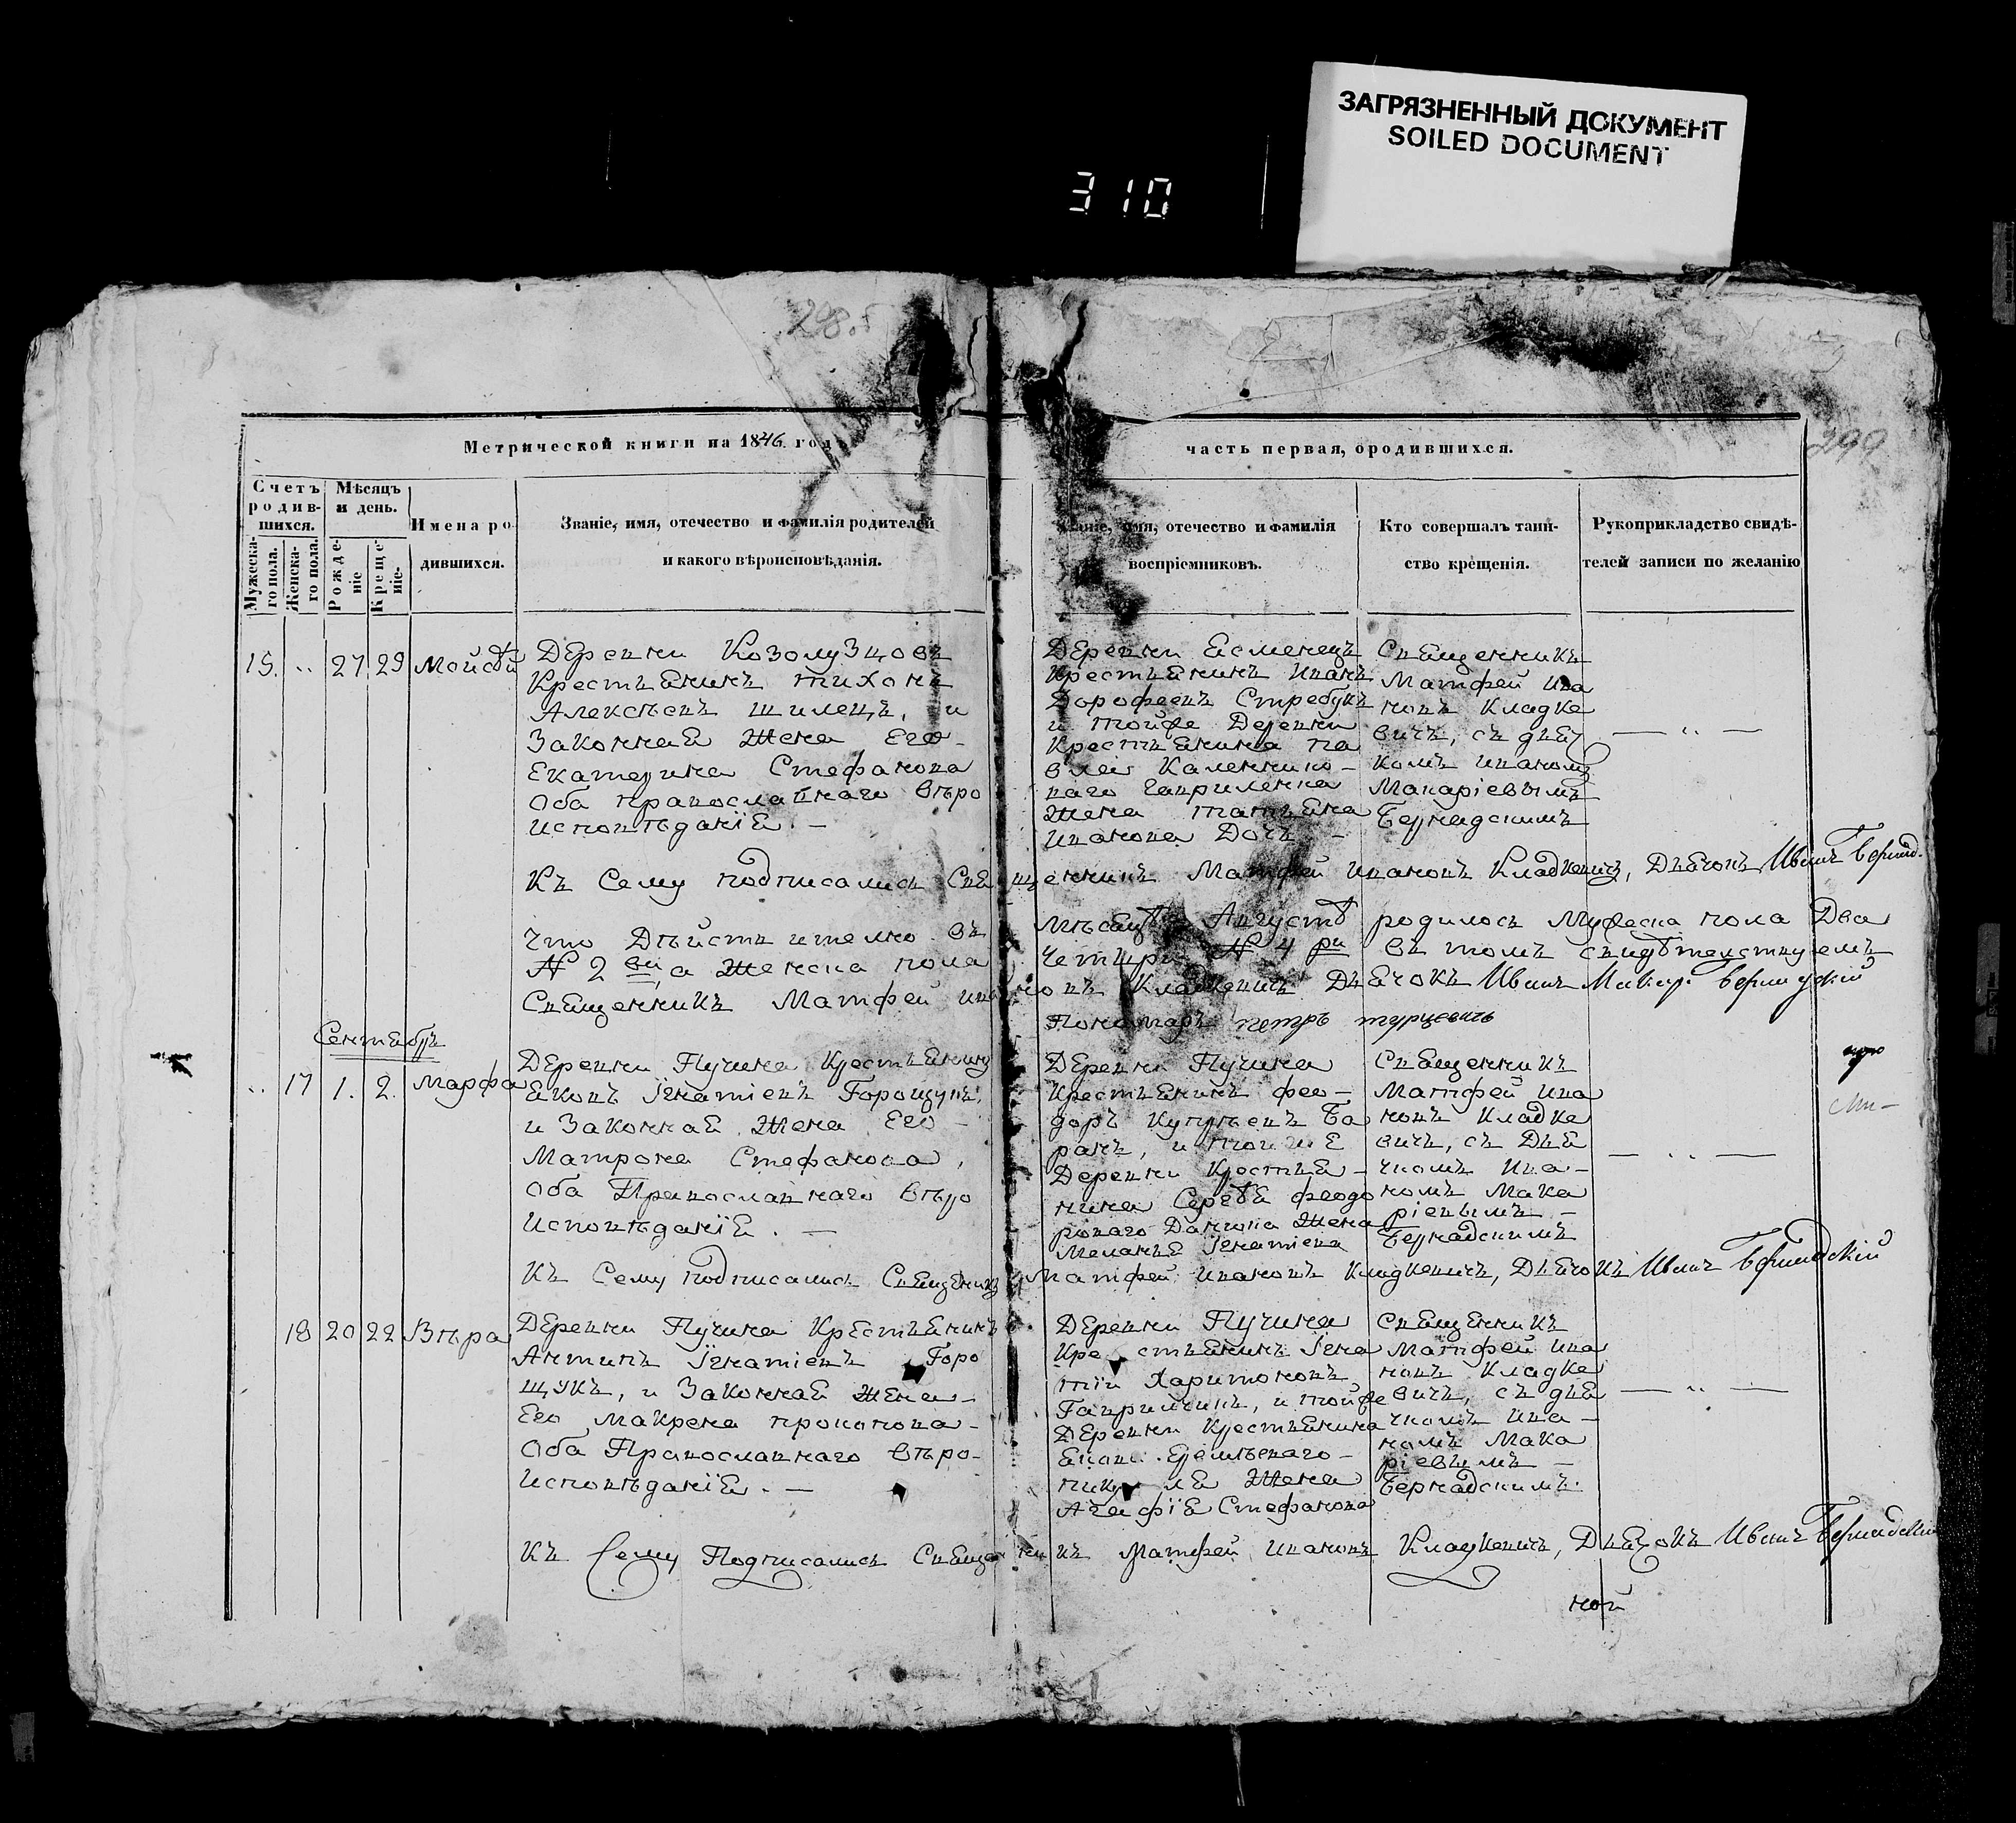 ЗАГРЯЗНЕННЫЙ ДОКУМЕНТ
SOILED DOCUMENT
310
298.
299
Метрической книги на 1846 год
часть первая, ородившихся.
Счетъ родив-шихся.
Мужеска-го пола.
Женска-го пола.
Мѣсяцъ и день.
Рожде-ніе
Креще-ніе.
Имена ро-
дившихся.
Званіе, имя, отечество и фамилія родителей
и какого вѣроисповѣданія.
Званіе, имя, отечество и фамилія
воспріемниковъ.
Кто совершалъ таин-
ство крещенія.
Рукоприкладство свидѣ-
телей записи по желанію
15. 27 29 Мойсѣй
Деревни Козолузцовъ
Крестьянинъ Тихонъ
Алексѣевъ Шилецъ, и
Законная Жена Его
Екатерина Стефанова
Оба православнаго вѣро
исповѣданія. —
Деревни Есменецъ
Крестьянинъ Иванъ
Дорофеевъ Стребукъ
и тойже Деревни
Крестьянина Па
вла Каленико-
ваго Гаврилека
Жена Татьяна
Иванова Дочь —
Священникъ
Матфей Ива
новъ Кладке
вичъ, съ дьяч
комъ Иваномъ
Макаріевымъ
Бернадскимъ
Къ Сему подписались Священникъ Матфей Ивановъ Кладкевичъ, Дьячокъ Иванъ Бернад.
Что Дѣйствително въ Мѣсяцѣ Августѣ родилось Мужеска пола Два
№ 2 ва, а Женска пола Четыри № 4 ри въ томъ свидѣтелствуемъ
Священникъ Матфей Ивановъ Кладкевичъ Дьячокъ Иванъ Макар. Бернадскій
Пономарь Петръ Турцевичъ
Сентябрь
17 1. 2. Марфа
Деревни Пучина Крестьянинъ
Яковъ Игнатіевъ Горощукъ,
и Законная Жена Его
Матрона Стефанова,
Оба Православнаго Вѣро
Исповѣданія. —
Деревни Пучина
Крестьянинъ Фео-
доръ Купрѣевъ Ба
ранъ, и тойже
Деревни Крестья-
нина Сергѣя Феодо
роваго Данила Жена
Меланья Игнатіева
Священникъ
Матфей Ива
новъ Кладке
вичъ, съ Дья
чкомъ Ива-
номъ Мака
ріевымъ —
Бернадскимъ
Къ Сему подписались Священикъ Матфей Ивановъ Кладкевичъ, Дьячокъ Иванъ Бернадскій
18 20 22 Вѣра
Деревни Пучина Крестьянинъ
Антипъ Игнатіевъ Горо
щукъ, и Законная Жена —
Его Макрена Прокопова —
Оба Православнаго вѣро-
Исповѣданія. —
Деревни Пучина
Крестьянинъ Игна
тій Харитоновъ
Гаврильчикъ, и тойже
Деревни Крестьянина
Жена
Агафія Стефанова
Священникъ
Матфей Ива
новъ Кладке
вичъ, съ дья
чкомъ Ива —
номъ Мака
ріевымъ —
Бернадскимъ.
Къ Сему Подписались Священникъ Матфей Ивановъ Кладкевичъ, Дьячокъ Иванъ Бернадскій
ной